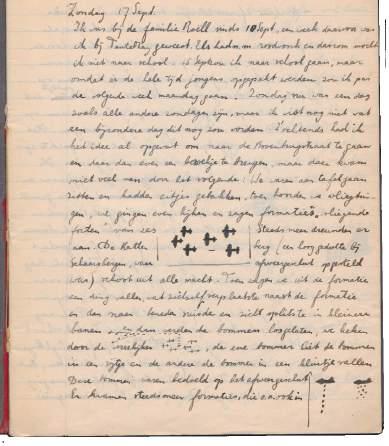 Zondag 17 Sept.
Ik was bij de familie Roëll sinds 10 Sept, een week daarvoor was
ik bij geweest. Els had m'n roodvonk en daarom mocht
ik niet naar school. 15 Sept kon ik naar school gaan, maar
omdat in de hele tijd jongens opgepakt werden zou ik pas
de volgende week maandag gaan. Zondag nu was een dag
zoals alle andere zondagen zijn, maar ik wist nog niet wat
een bijzondere dag dit nog zou worden. 's ochtends had ik
het idee al opgevat om naar de straat te gaan
en daar dan even een bezoekje te brengen, maar daar kwam
niet veel van door het volgende: We waren aan tafel gaan
zitten en hadden eitjes gebakken, toen hoorden we vliegtui-
gen, we gingen even kijken en zagen formaties vliegende
forten van zes Steeds meer dreunden er
aan. De Ratten berg (een loods bij
Schaarsbergen, waar afweergeschut opgesteld
was) schoot uit alle macht. Toen zagen we uit de formatie
een ding vallen, wat zichzelf verplaatste naast de formatie
en dan naar beneden suisde en zich splitste in kleinere
banen, en dan werden de bommen losgelaten, we keken
door de verrekijker, de ene bommen liet de bommen
in een rijtje en de andere de bommen in een kluitje vallen
Deze bommen waren bedoeld op het afweergeschut
Er kwamen steeds meer formaties, die